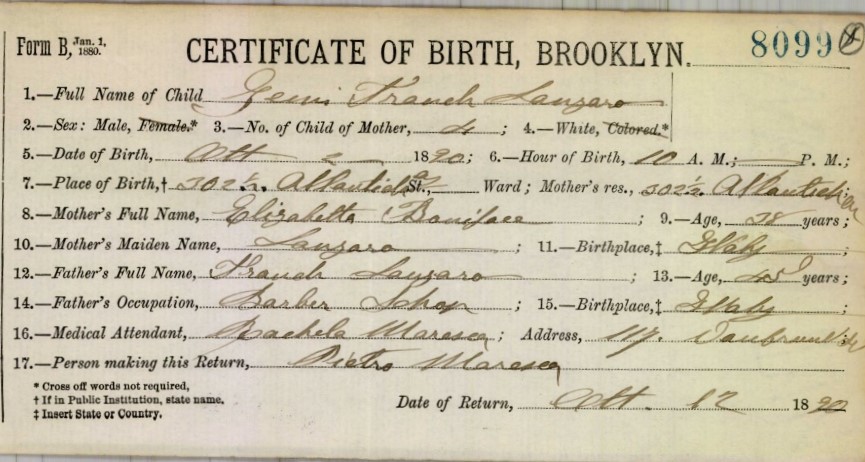 Form B, Jan. 1. 1880. CERTIFICATE OF BIRTH, BROOKLYN. 8099
1.—Full Name of Child Franch Lanzaro
2.—Sex: Male, Female.* 3.—No. of Child of Mother, 4; 4.—White, Colored.*
5.—Date of Birth, Ott 1890; 6.—Hour of Birth, 10 A. M.; P. M.;
7.—Place of Birth,† 302½ Atlantich St., Ward; Mother's res., 302½ Atlantich
8.—Mother's Full Name, Elizabetta Boniface; 9.—Age, years;
10.—Mother's Maiden Name, Lanzaro; 11.—Birthplace,‡ Italy;
12.—Father's Full Name, Franch Lanzaro; 13.—Age, years;
14.—Father's Occupation, Barber Schop; 15.—Birthplace,‡ Italy;
16.—Medical Attendant, Rachela Maresca; Address, 117.
17.—Person making this Return, Pietro Maresca
* Cross off words not required,
† If in Public Institution, state name.
‡ Insert State or Country.
Date of Return, Ott. 12 1890